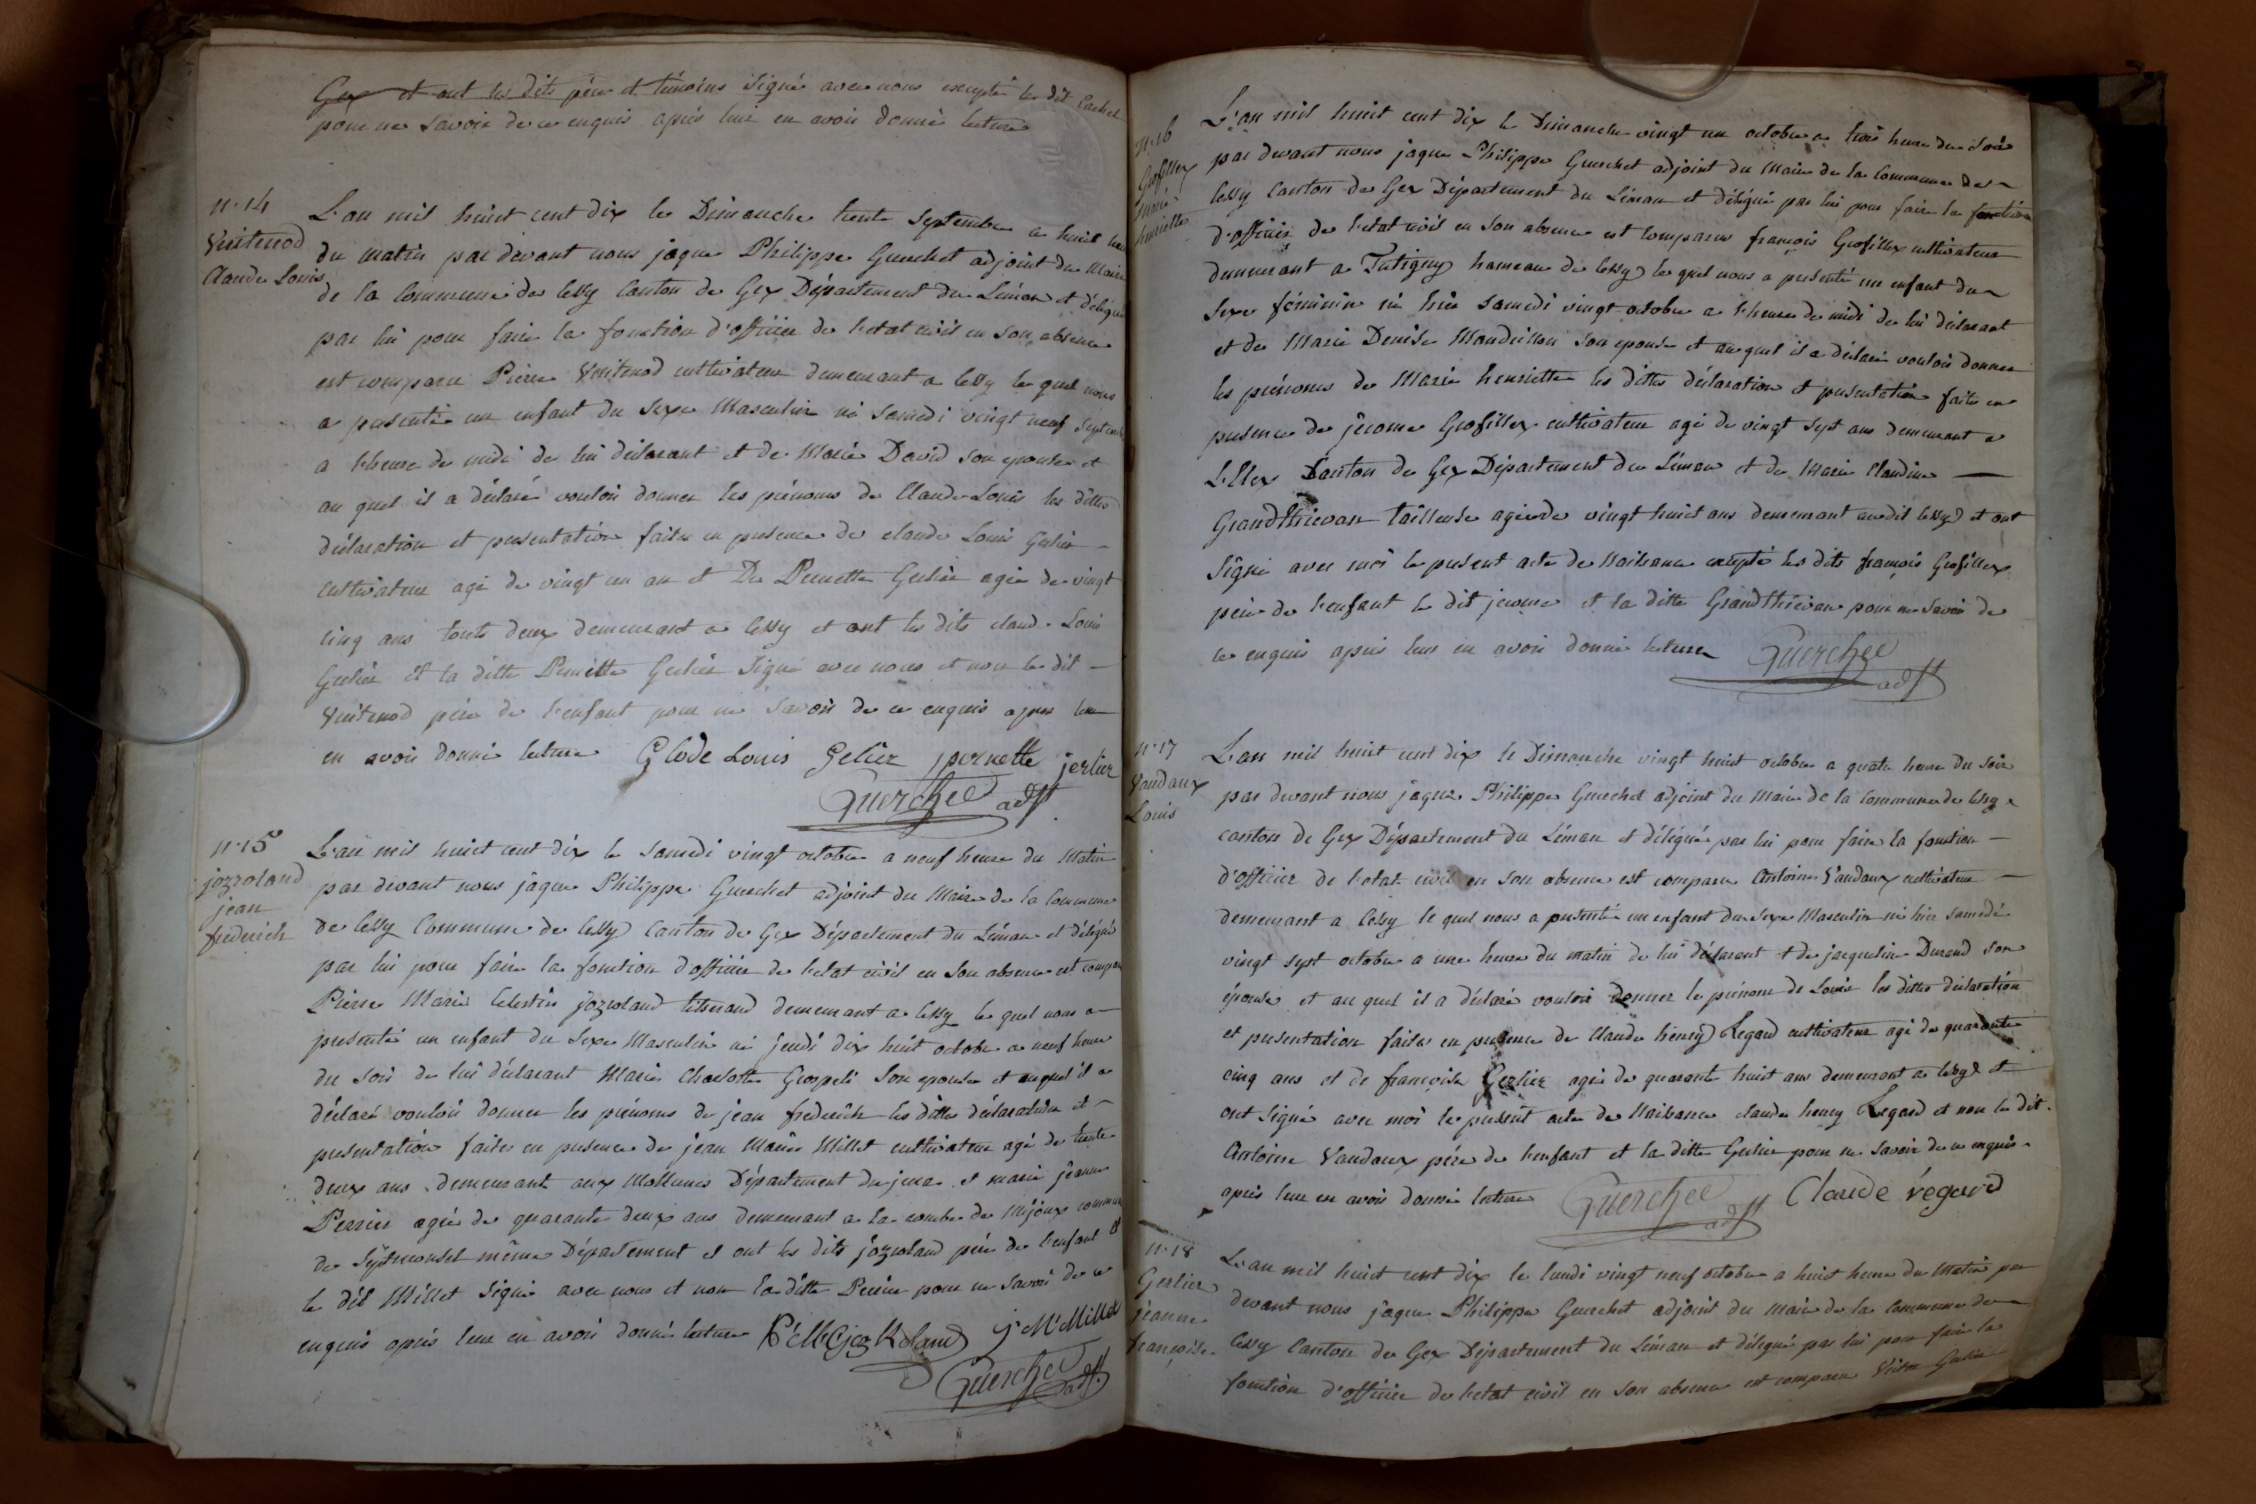 Gex et ont les dits père et témoins signé avec nous excepté le dit
pour ne savoir de ce enquis après leur en avoir donné lecture
n.14
Vuitenod
Claude Louis
L'an mil huict cent dix le Dimanche trente septembre a huit heure
du matin par devant nous jaque Philippe Guerchet adjoint du Maire
de la commune de Cessy Canton de Gex Département du Léman et délégué
par lui pour faire la fonction d'officier de l'etat civil en son absence
est comparu Pierre Vuitenod cultivateur demeurant a Cessy le quel nous
a presenté un enfant du sexe Masculin né samedi vingt neuf septembre
a l'heure de midi de lui déclarant et de Marie David son epouse et
au quel il a déclaré vouloir donner les prénoms de Claude Louis les dittes
déclaration et presentation faites en presence de claude Louis Gerlier
cultivateur agé de vingt un an et De Pernette Gerlier agée de vingt
cinq ans touts deux demeurant a Cessy et ont les dits claud. Louis
Gerlier et la ditte Pernette Gerlier signé avec nous et non le dit
Vuitenod père de l'enfant pour ne savoir de ce enquis apres leur
en avoir donné lecture Glode Louis Gelier pernette jerlier
Guerchet adjt
n.15
jozroland
jean
frederich
L'an mil huict cent dix le samedi vingt octobre a neuf heure du Matin
par devant nous jaque Philippe Guerchet adjoint du Maire de la Commune
de Cessy Commune de Cessy Canton de Gex Département du Léman et délégué
par lui pour faire la fonction d'officier de l'etat civil en son absence est comparu
Pierre Marie Celestin jozroland titserand demeurant a Cessy le quel nous a
presenté un enfant du sexe Masculin né jeudi dix huit octobre a neuf heure
du soir de lui déclarant Marie Charlotte Grospeli son epouse et auquel il a
déclaré vouloir donner les prénoms de jean frederich les dittes déclaration et
presentation faites en presence de jean Marie Millet cultivateur agé de trente
deux ans demeurant aux Mollunes Département du jura et marie jeanne
Perrier agée de quarante deux ans demeurant a la combe de Mijoux commune
de Septmoncel même Département et ont les dits jozroland père de l'enfant et
le dit Millet signé avec nous et non la ditte Perrier pour ne savoir de ce
enquis après leur en avoir donné lecture J. M. Millet
Guerchet adjt.
n.16
Grofillex
Marie
henriette
L'an mil huict cent dix le Dimanche vingt un octobre a trois heure du soir
par devant nous jaque Philippe Guerchet adjoint du Maire de la Commune de
Cessy Canton de Gex Département du Léman et délégué par lui pour faire la fonction
d'officier de l'etat civil en son absence est comparus françois Grofillex cultivateur
demeurant a Tutigny hameau de Cessy le quel nous a presenté un enfant du
sexe féminin né hier samedi vingt octobre a l'heure de midi de lui déclarant
et de Marie Denise Mandrillon son epouse et auquel il a déclaré vouloir donner
les prénoms de Marie henriette les dittes déclaration et presentation faite en
presence de jerome Grofillex cultivateur agé de vingt sept ans demeurant a
Lellex Canton de Gex Département du Léman et de Marie Claudine
Grandthievan tailleuse agée de vingt huict ans demeurant audit Cessy et ont
signé avec moi le present acte de Naissance excepté les dits françois Grofillex
père de l'enfant le dit jerome et la ditte Grandthievan pour ne savoir de
ce enquis après leur en avoir donné lecture Guerchet
adjt
n.17
Vandaux
Louis
L'an mil huict cent dix le Dimanche vingt huict octobre a quatre heure du soir
par devant nous jaque Philippe Guerchet adjoint du Maire de la commune de Cessy
canton de Gex Département du Léman et délégué par lui pour faire la fonction
d'officier de l'etat civil en son absence est comparu Antoine Vandaux cultivateur
demeurant a Cessy le quel nous a presenté un enfant du sexe Masculin né hier samedi
vingt sept octobre a une heure du matin de lui déclarant et de jacqueline Durand son
épouse et au quel il a déclaré vouloir donner le prénom de Louis les dittes déclaration
et presentation faites en presence de Claude henry Regard cultivateur agé de quarante
cinq ans et de françoise Gerlier agée de quarante huict ans demeurant a Cessy et
ont signé avec moi le present acte de Naissance claude henry Regard et non le dit
Antoine Vandaux père de l'enfant et la ditte Gerlier pour ne savoir de ce enquis
après leur en avoir donné lecture Guerchet adjt Claude régard
n.18
Gerlier
jeanne
françoise
L'an mil huict cent dix le lundi vingt neuf octobre a huict heure du Matin par
devant nous jaque Philippe Guerchet adjoint du maire de la Commune de
Cessy Canton de Gex Département du Léman et délégué par lui pour faire la
fonction d'officier de l'etat civil en son absence est comparu Victor Gerlier